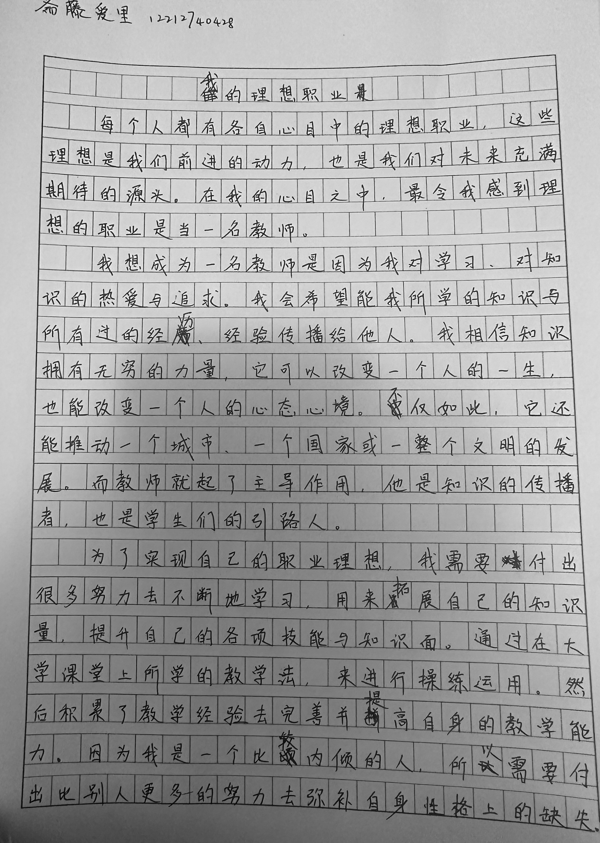 斋藤爱里 12212740428
我的理想职业
每个人都有各自心目中的理想职业，这些
理想是我们前进的动力，也是我们对未来充满
期待的源头。在我的心目之中，最令我感到理
想的职业是当一名教师。
我想成为一名教师是因为我对学习、对知
识的热爱与追求。我会希望能我所学的知识与
所有过的经历、经验传播给他人。我相信知识
拥有无穷的力量，它可以改变一个人的一生，
也能改变一个人的心态心境。不仅如此，它还
能推动一个城市、一个国家或一整个文明的发
展。而教师就起了主导作用，他是知识的传播
者，也是学生们的引路人。
为了实现自己的职业理想，我需要付出
很多努力去不断地学习，用来拓展自己的知识
量，提升自己的各项技能与知识面。通过在大
学课堂上所学的教学法，来进行操练运用。然
后积累了教学经验去完善并提高自身的教学能
力。因为我是一个比较内倾的人，所以需要付
出比别人更多的努力去弥补自身性格上的缺失。